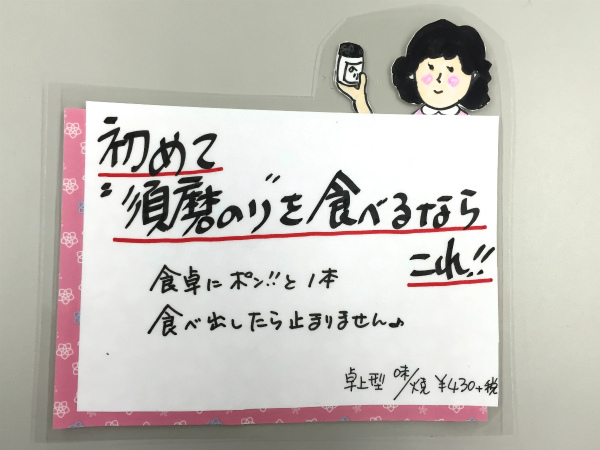 のり
初めて
"須磨のり"を食べるなら
これ!!
食卓にポン!!と1本
食べ出したら止まりません♪
卓上型 味/焼 ¥430+税